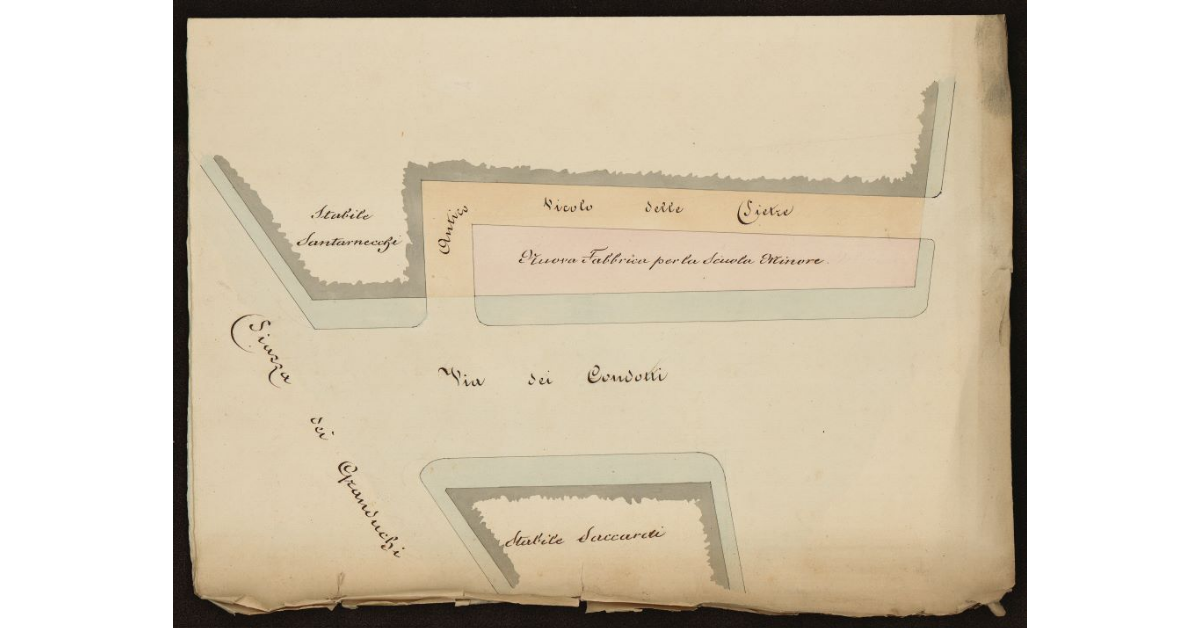 Stabile
Santarnecchi
Antico
Vicolo delle Pietre
Nuova Fabbrica per la Scuola Minore.
Piazza dei Granduchi
Via dei Condotti
Stabile Saccardi